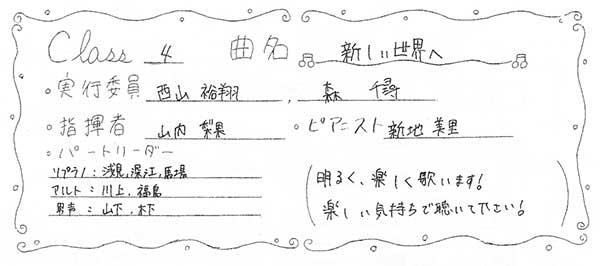 Class 4 曲名 新しい世界へ
・実行委員 西山 裕翔, 森 千尋
・指揮者 山内 梨果 ・ピアニスト 新地 美里
・パートリーダー
ソプラノ:浅見,深江,馬場
アルト:川上,福島
男声:山下,木下
(明るく、楽しく歌います!
楽しい気持ちで聴いて下さい!)